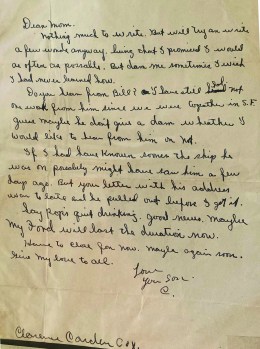 Dear Mom.
Nothing much to write. But will try an write
a few words anyway, being that I promised I would
as often as possible. But dam me sometimes I wish
I had never learned how.
Do you hear from Bill? I have still had not
one word from him since we were together in S.F.
guess maybe he don't give a dam wheather I
would like to hear from him or not.
If I had have known sooner the ship he
was on possibly might have saw him a few
days ago. But your letter with his address
was to late and he pulled out before I got it.
Say Pop's quit drinking. good news. Maybe
my Ford will last the duration now.
Have to close for now. maybe again soon.
Give my love to all.
Love
Your Son
C.
Clarence Carden